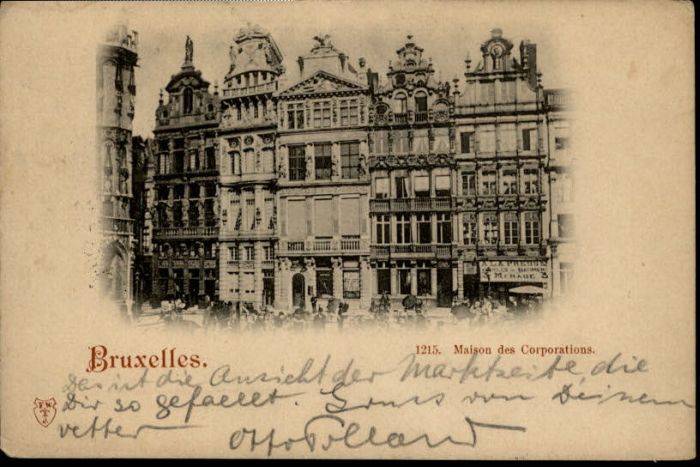 LA PRESSE
MERAGE 3
Bruxelles.
1215. Maison des Corporations.
Das ist die Ansicht der Marktseite, die
Dir so gefaellt. Gruss von Deinem
vetter Otto Polland